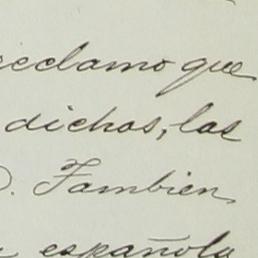 reclamo que
dichos, las
D. Tambien,
española